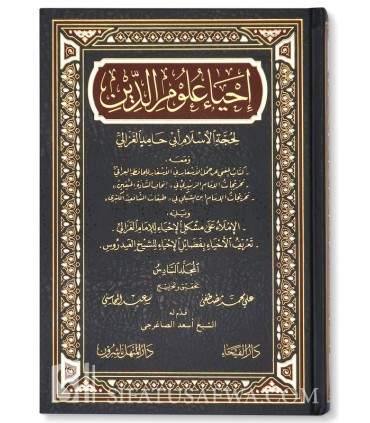 إحياء علوم الدين
لحجة الإسلام أبي حامد الغزالي
ومعه
كتاب المغني عن حمل الأسفار في الأسفار للحافظ العراقي
تخريجات الإمام الزبيدي في إتحاف السادة المتقين
تخريجات الإمام ابن السبكي في طبقات الشافعية الكبرى
ويليه
الإملاء على مشكل الإحياء للإمام الغزالي
تعريف الأحياء بفضائل الإحياء للشيخ العيدروس
المجلد السادس
تحقيق وتخريج
علي محمد مصطفى سعيد المحاسني
قدم له
الشيخ أسعد الصاغرجي
دار الفيحاء دار المنهل ناشرون
SIFATUSAFWA.COM